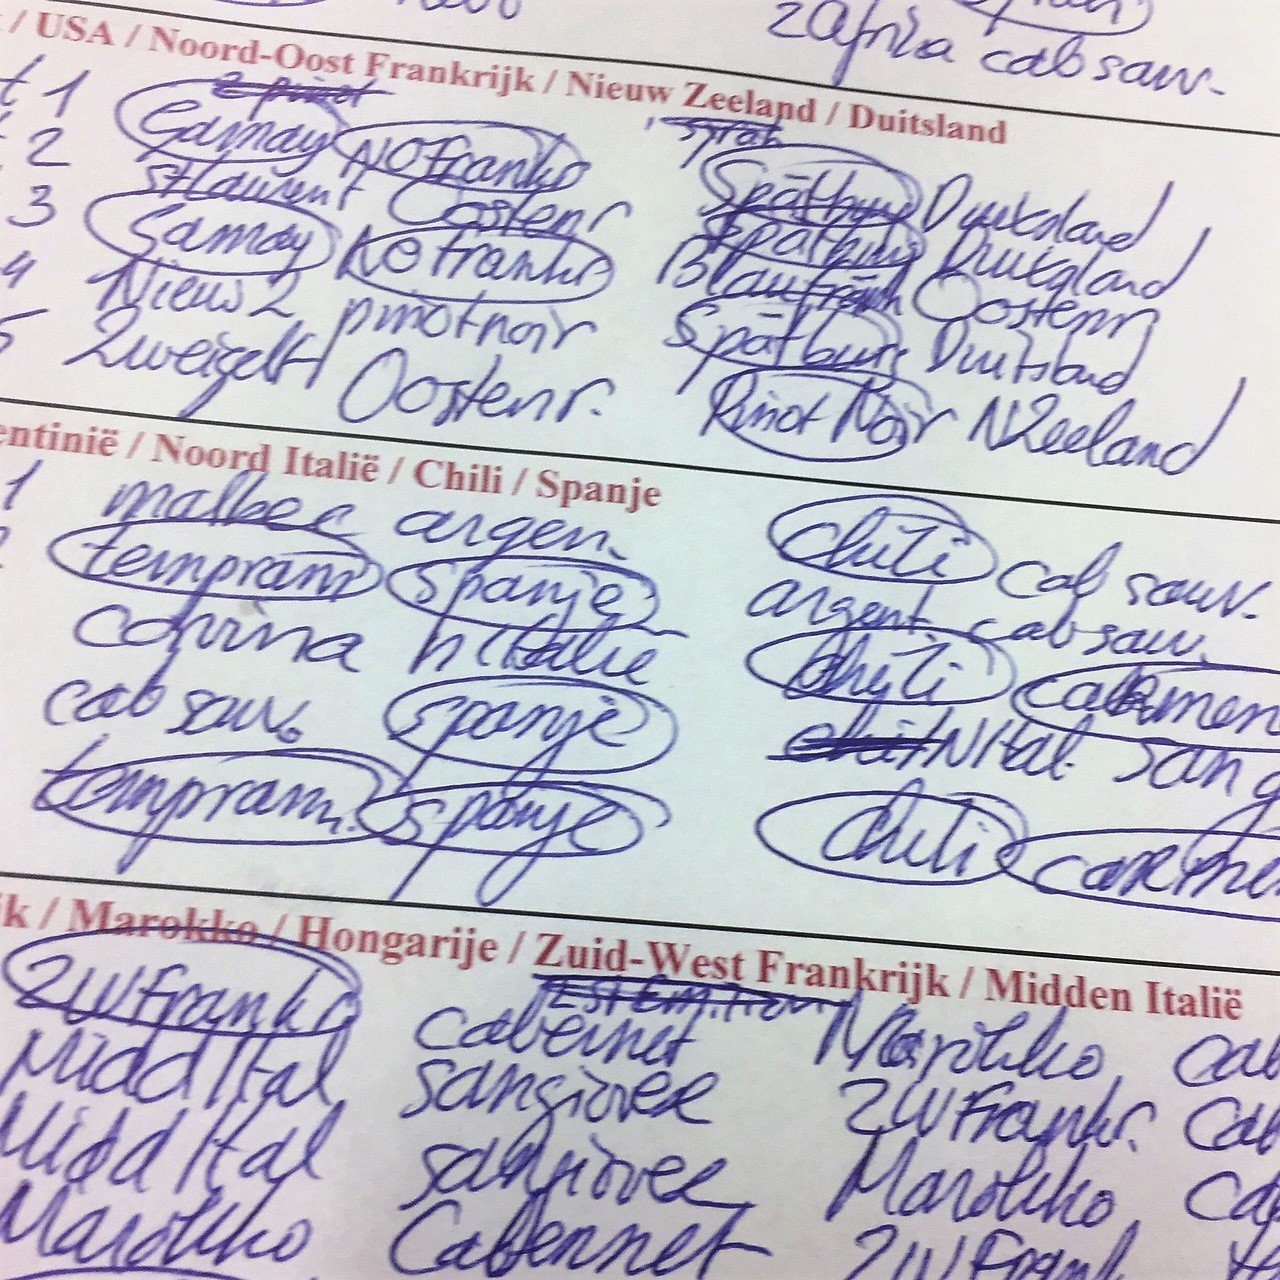 ZAfrika cab sauv.
/ USA / Noord-Oost Frankrijk / Nieuw Zeeland / Duitsland
t 1 Gamay NOFrankr Spätburg Duitsland
2 St Laurent Oostenr Spätburg Duitsland
3 Gamay NO Frankr Blaufränk Oostenr
4 Nieuw Z pinot noir Spätburg Duitsland
5 Zweigelt Oostenr. Pinot Noir NZeeland
entinië / Noord Italië / Chili / Spanje
1 malbec argen. Chili Cab sauv.
tempran Spanje argent cab sauv.
Corvina N Italie Chili
cab sauv. Spanje NItal. Sang
tempran. Spanje Chili Carme
jk / Marokko / Hongarije / Zuid-West Frankrijk / Midden Italië
ZWFrankr Cabernet Marokko, Cab
Midd Ital Sangiovese ZWFrankr. Cab
Midd Ital Sangiovese Marokko, Cab
Marokko Cabernet ZWFrank